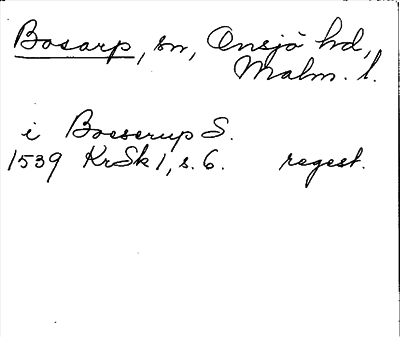 Bosarp, sn, Onsjö hd,
Malm. l.
i Boeserup S.
1539 KrSk 1, s. 6. regest.